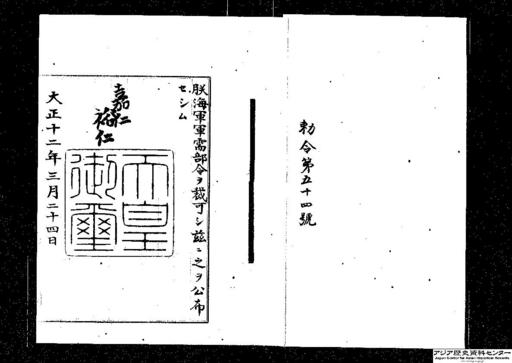 勅令第五十四號
朕海軍軍需部令ヲ裁可シ茲ニ之ヲ公布
セシム
嘉仁
裕仁
天皇
御璽
大正十二年三月二十四日
アジア歴史資料センター
Japan Center for Asian Historical Records